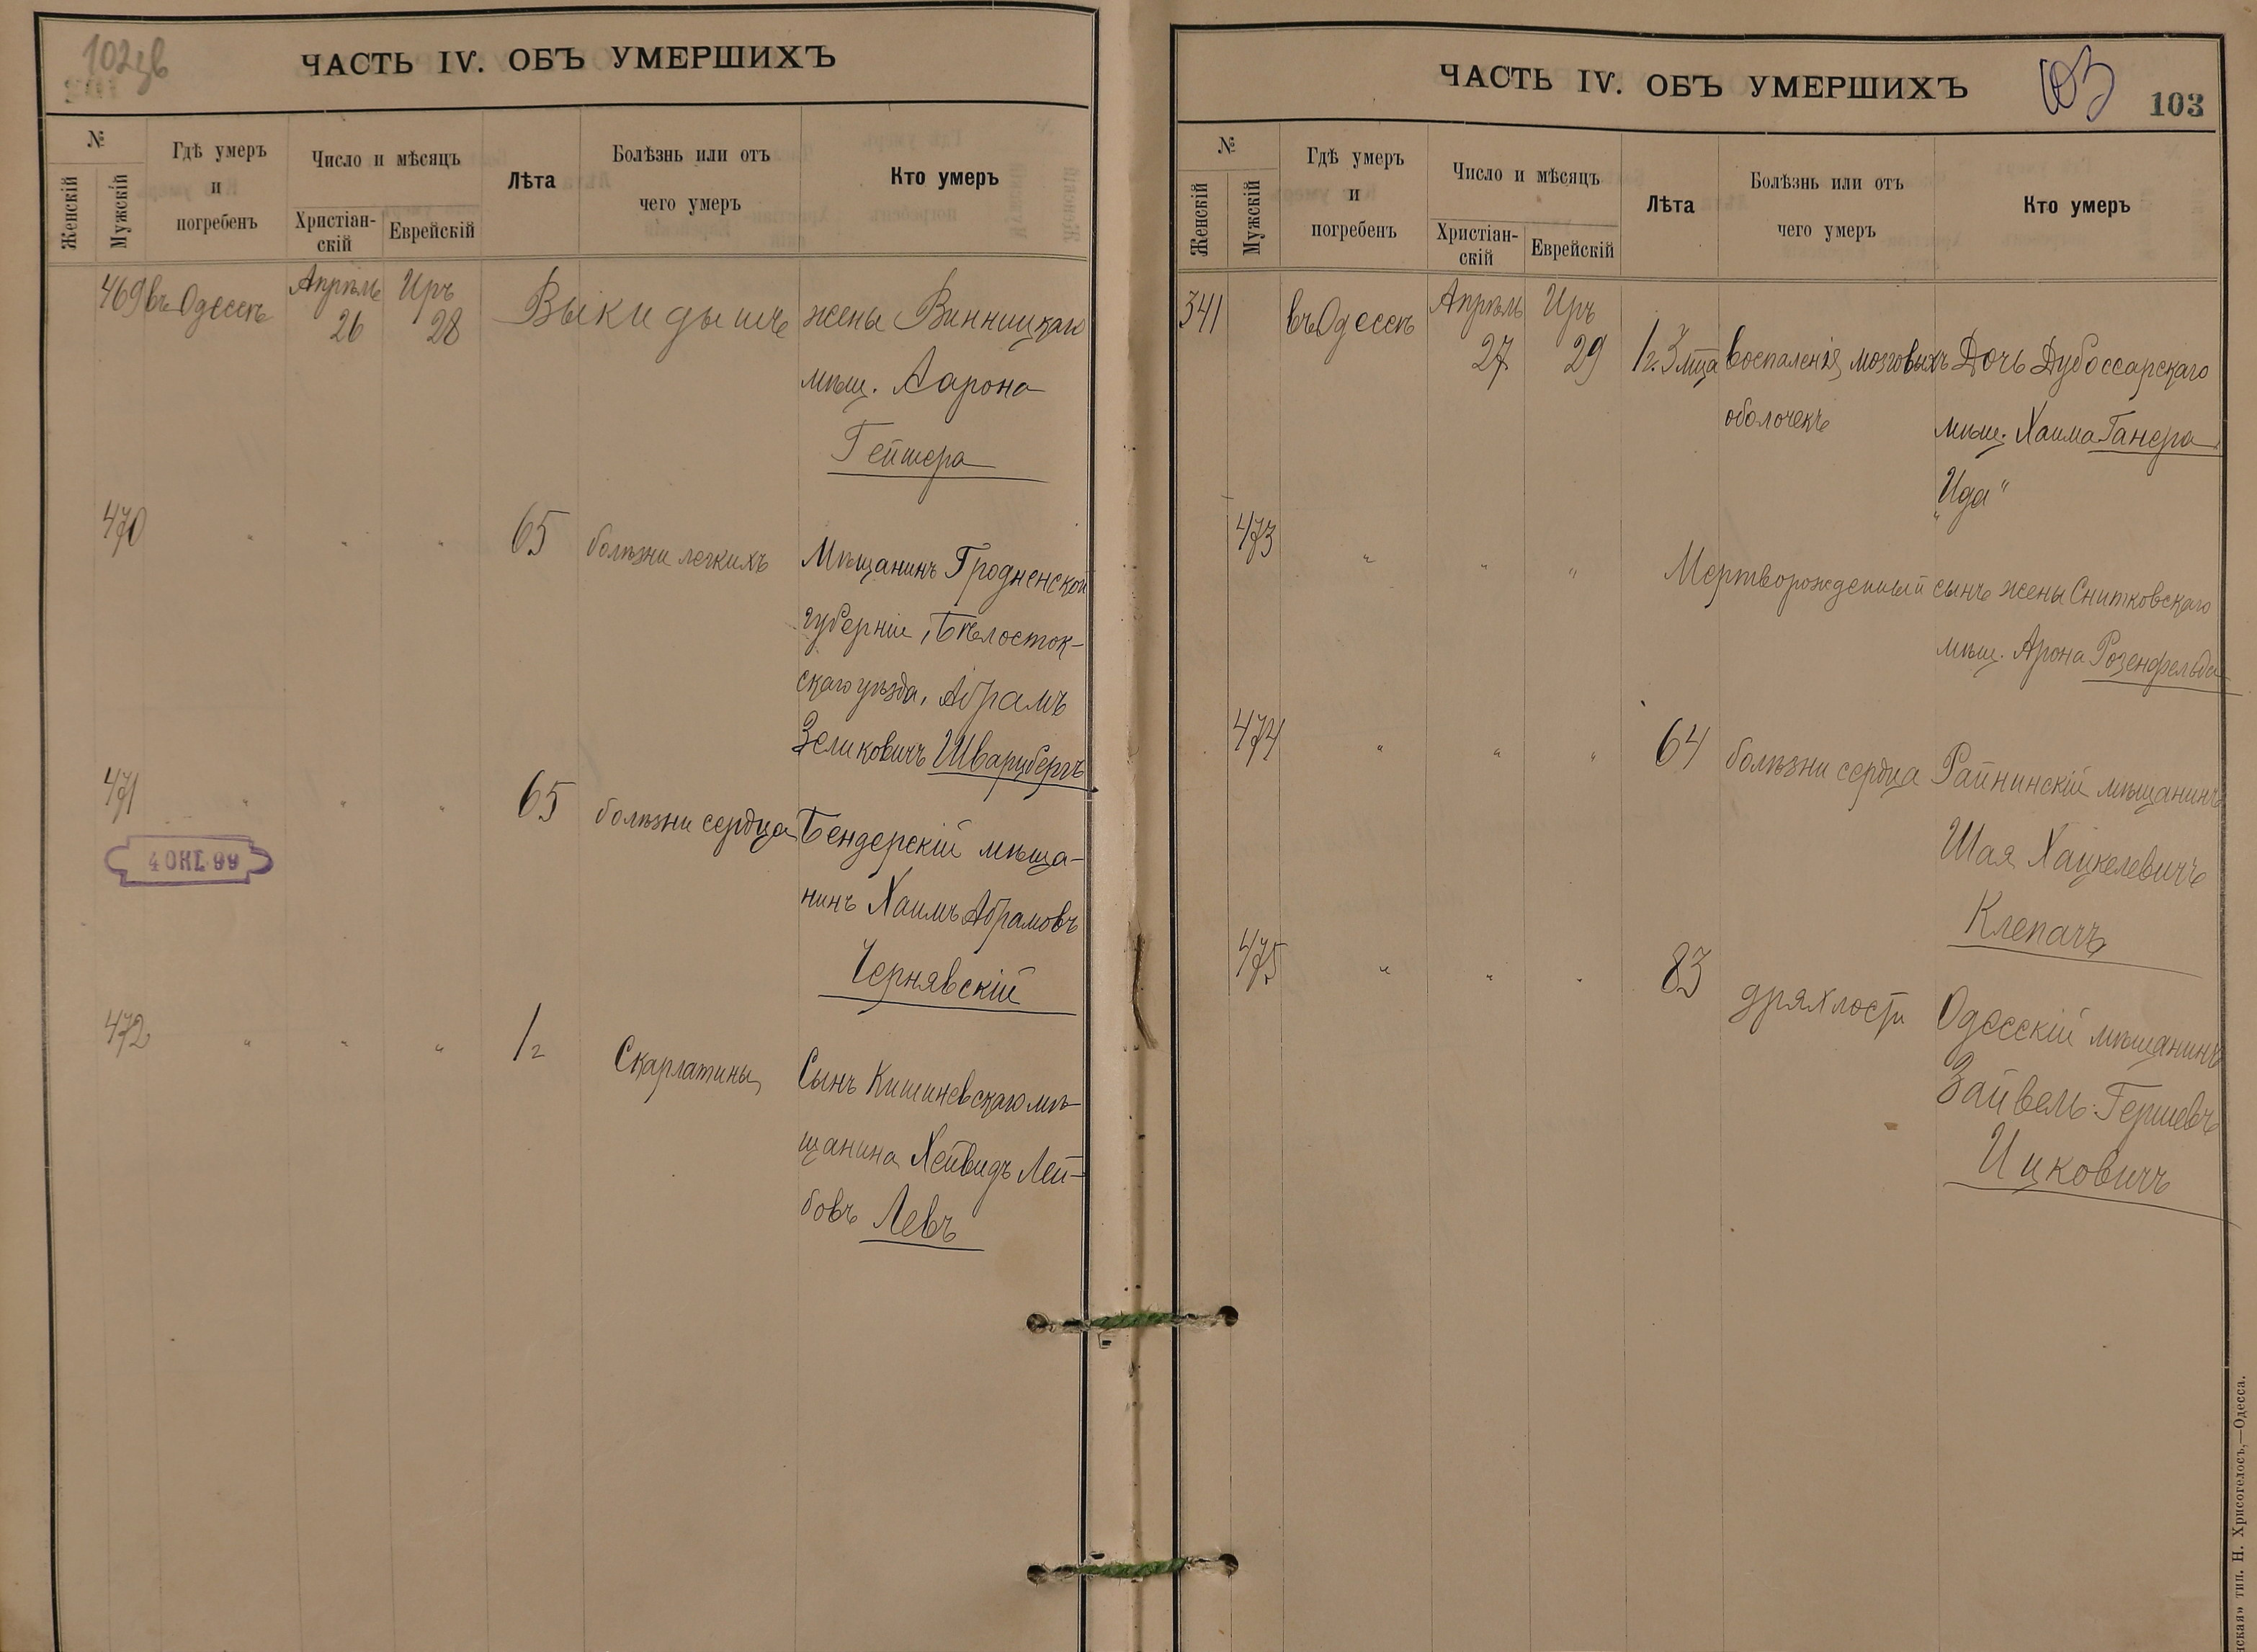 102 зв
ЧАСТЬ IV. ОБЪ УМЕРШИХЪ
№
Женскій
Мужскій
Гдѣ умеръ
и
погребенъ
Число и мѣсяцъ
Христіан-
скій
Еврейскій
Лѣта
Болѣзнь или отъ
чего умеръ
Кто умеръ
469 въ Одессѣ Апрѣль 26 Иръ 28 Выкидышъ жены Винницкаго
мѣщ. Аарона
Гейшера
470 " " " 65 болѣзни легкихъ Мѣщанинъ Гродненской
губерніи, Бѣлосток-
скаго уѣзда, Абрамъ
Зеликовичъ Шварцбергъ
471 " " " 65 болѣзни сердца Бендерскій мѣща-
4 ОКТ. 99
нинъ Хаимъ Абрамовъ
Чернявскій
472 " " " 1 г Скарлатины Сынъ Кишиневскаго мѣ-
щанина Хейвидъ Лей-
бовъ Левъ
ЧАСТЬ IV. ОБЪ УМЕРШИХЪ
103
103
№
Женскій
Мужскій
Гдѣ умеръ
и
погребенъ
Число и мѣсяцъ
Христіан-
скій
Еврейскій
Лѣта
Болѣзнь или отъ
чего умеръ
Кто умеръ
341 въ Одессѣ Апрѣль 27 Иръ 29 1 г. 3 мца воспаленія мозговыхъ Дочь Дубоссарскаго
оболочекъ мѣщ. Хаима Ганера
"Ида"
473 " " " Мертворожденный сынъ жены Снитковскаго
мѣщ. Арона Розенфельда
474 " " " 64 болѣзни сердца Райнинскій мѣщанинъ
Шая Хацкелевичъ
Клепачъ
475 " " " 83 дряхлости Одесскій мѣщанинъ
Зайвель Гершевъ
Ицковичъ
тип. Н. Хрисогелосъ,—Одесса.